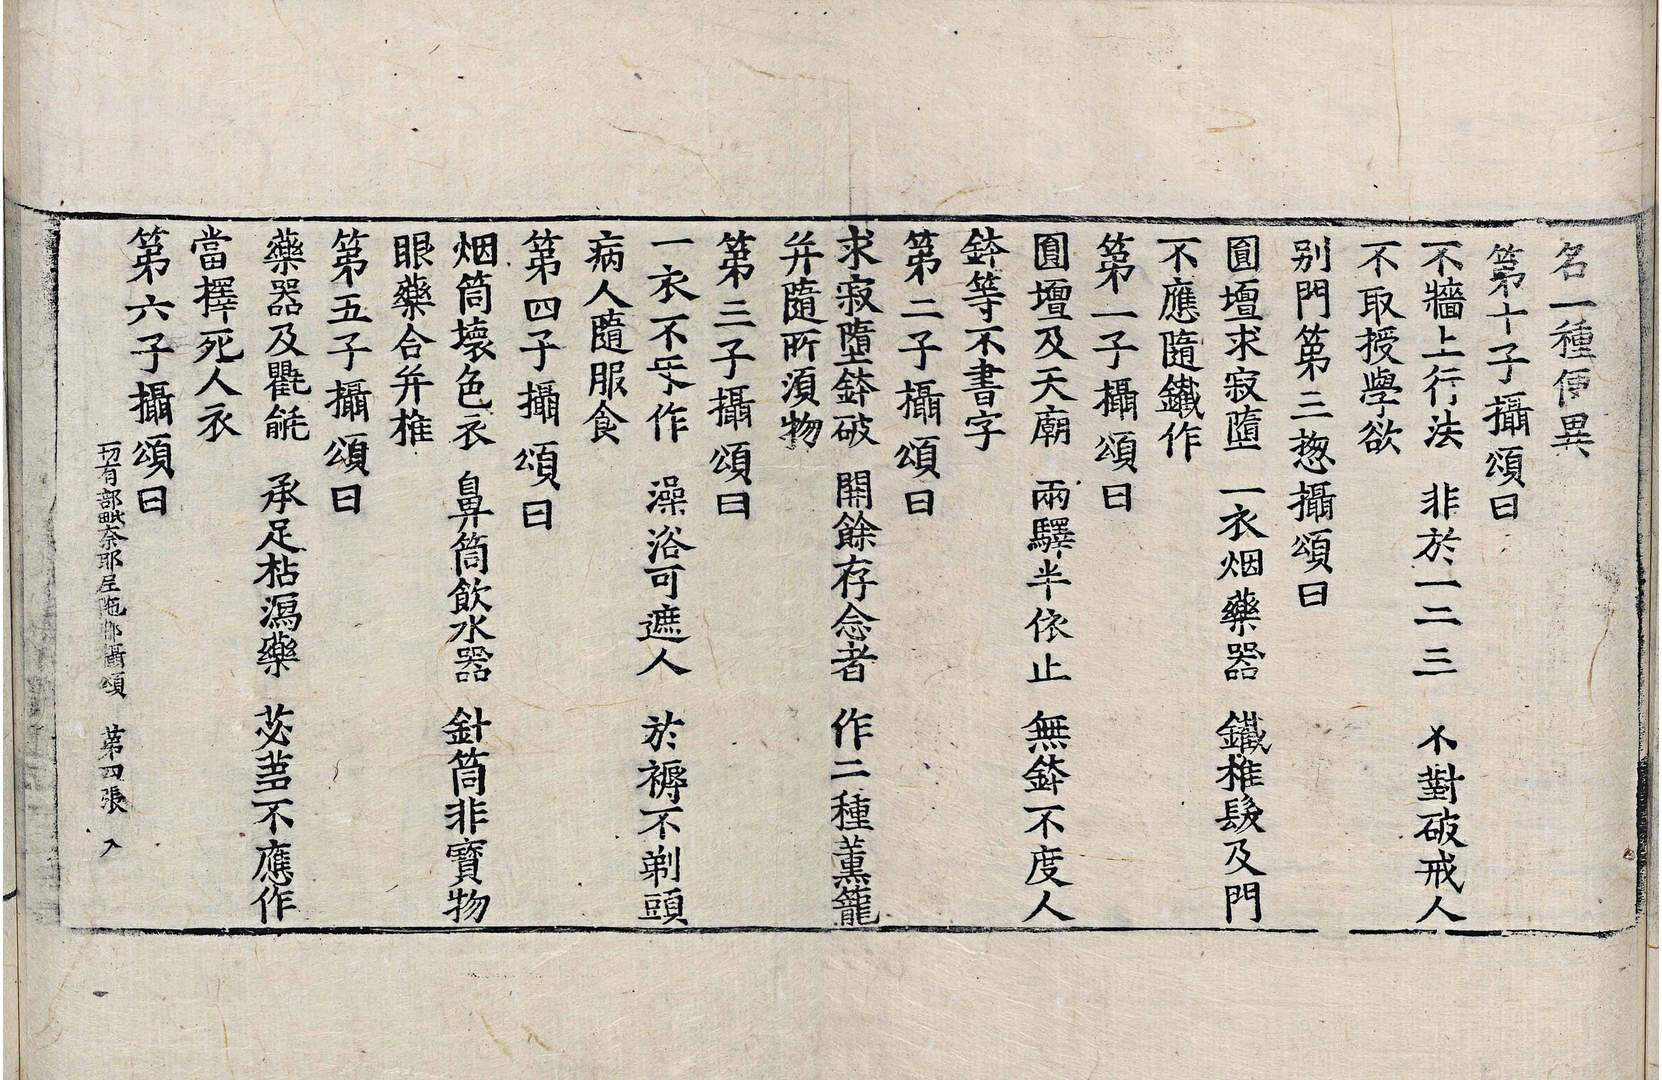 名一種便異
第十子攝頌曰
不牆上行法　非於一二三　不對破戒人
不取授學欲
別門第三揔攝頌曰
圓壇求寂墮　一衣烟藥器　鐵椎髮及門
不應隨鐵作
第一子攝頌曰
圓壇及天廟　兩驛半依止　無鉢不度人
鉢等不書字
第二子攝頌曰
求寂墮鉢破　開餘存念者　作二種薰籠
并隨所須物
第三子攝頌曰
一衣不互作　澡浴可遮人　於褥不剃頭
病人隨服食
第四子攝頌曰
烟筒壞色衣　鼻筒飲水器　針筒非寶物
眼藥合并椎
第五子攝頌曰
藥器及氍毹　承足枯瀉藥　苾芻不應作
當擇死人衣
切有部毗奈耶尼陁那攝頌　第四張　入
第六子攝頌曰